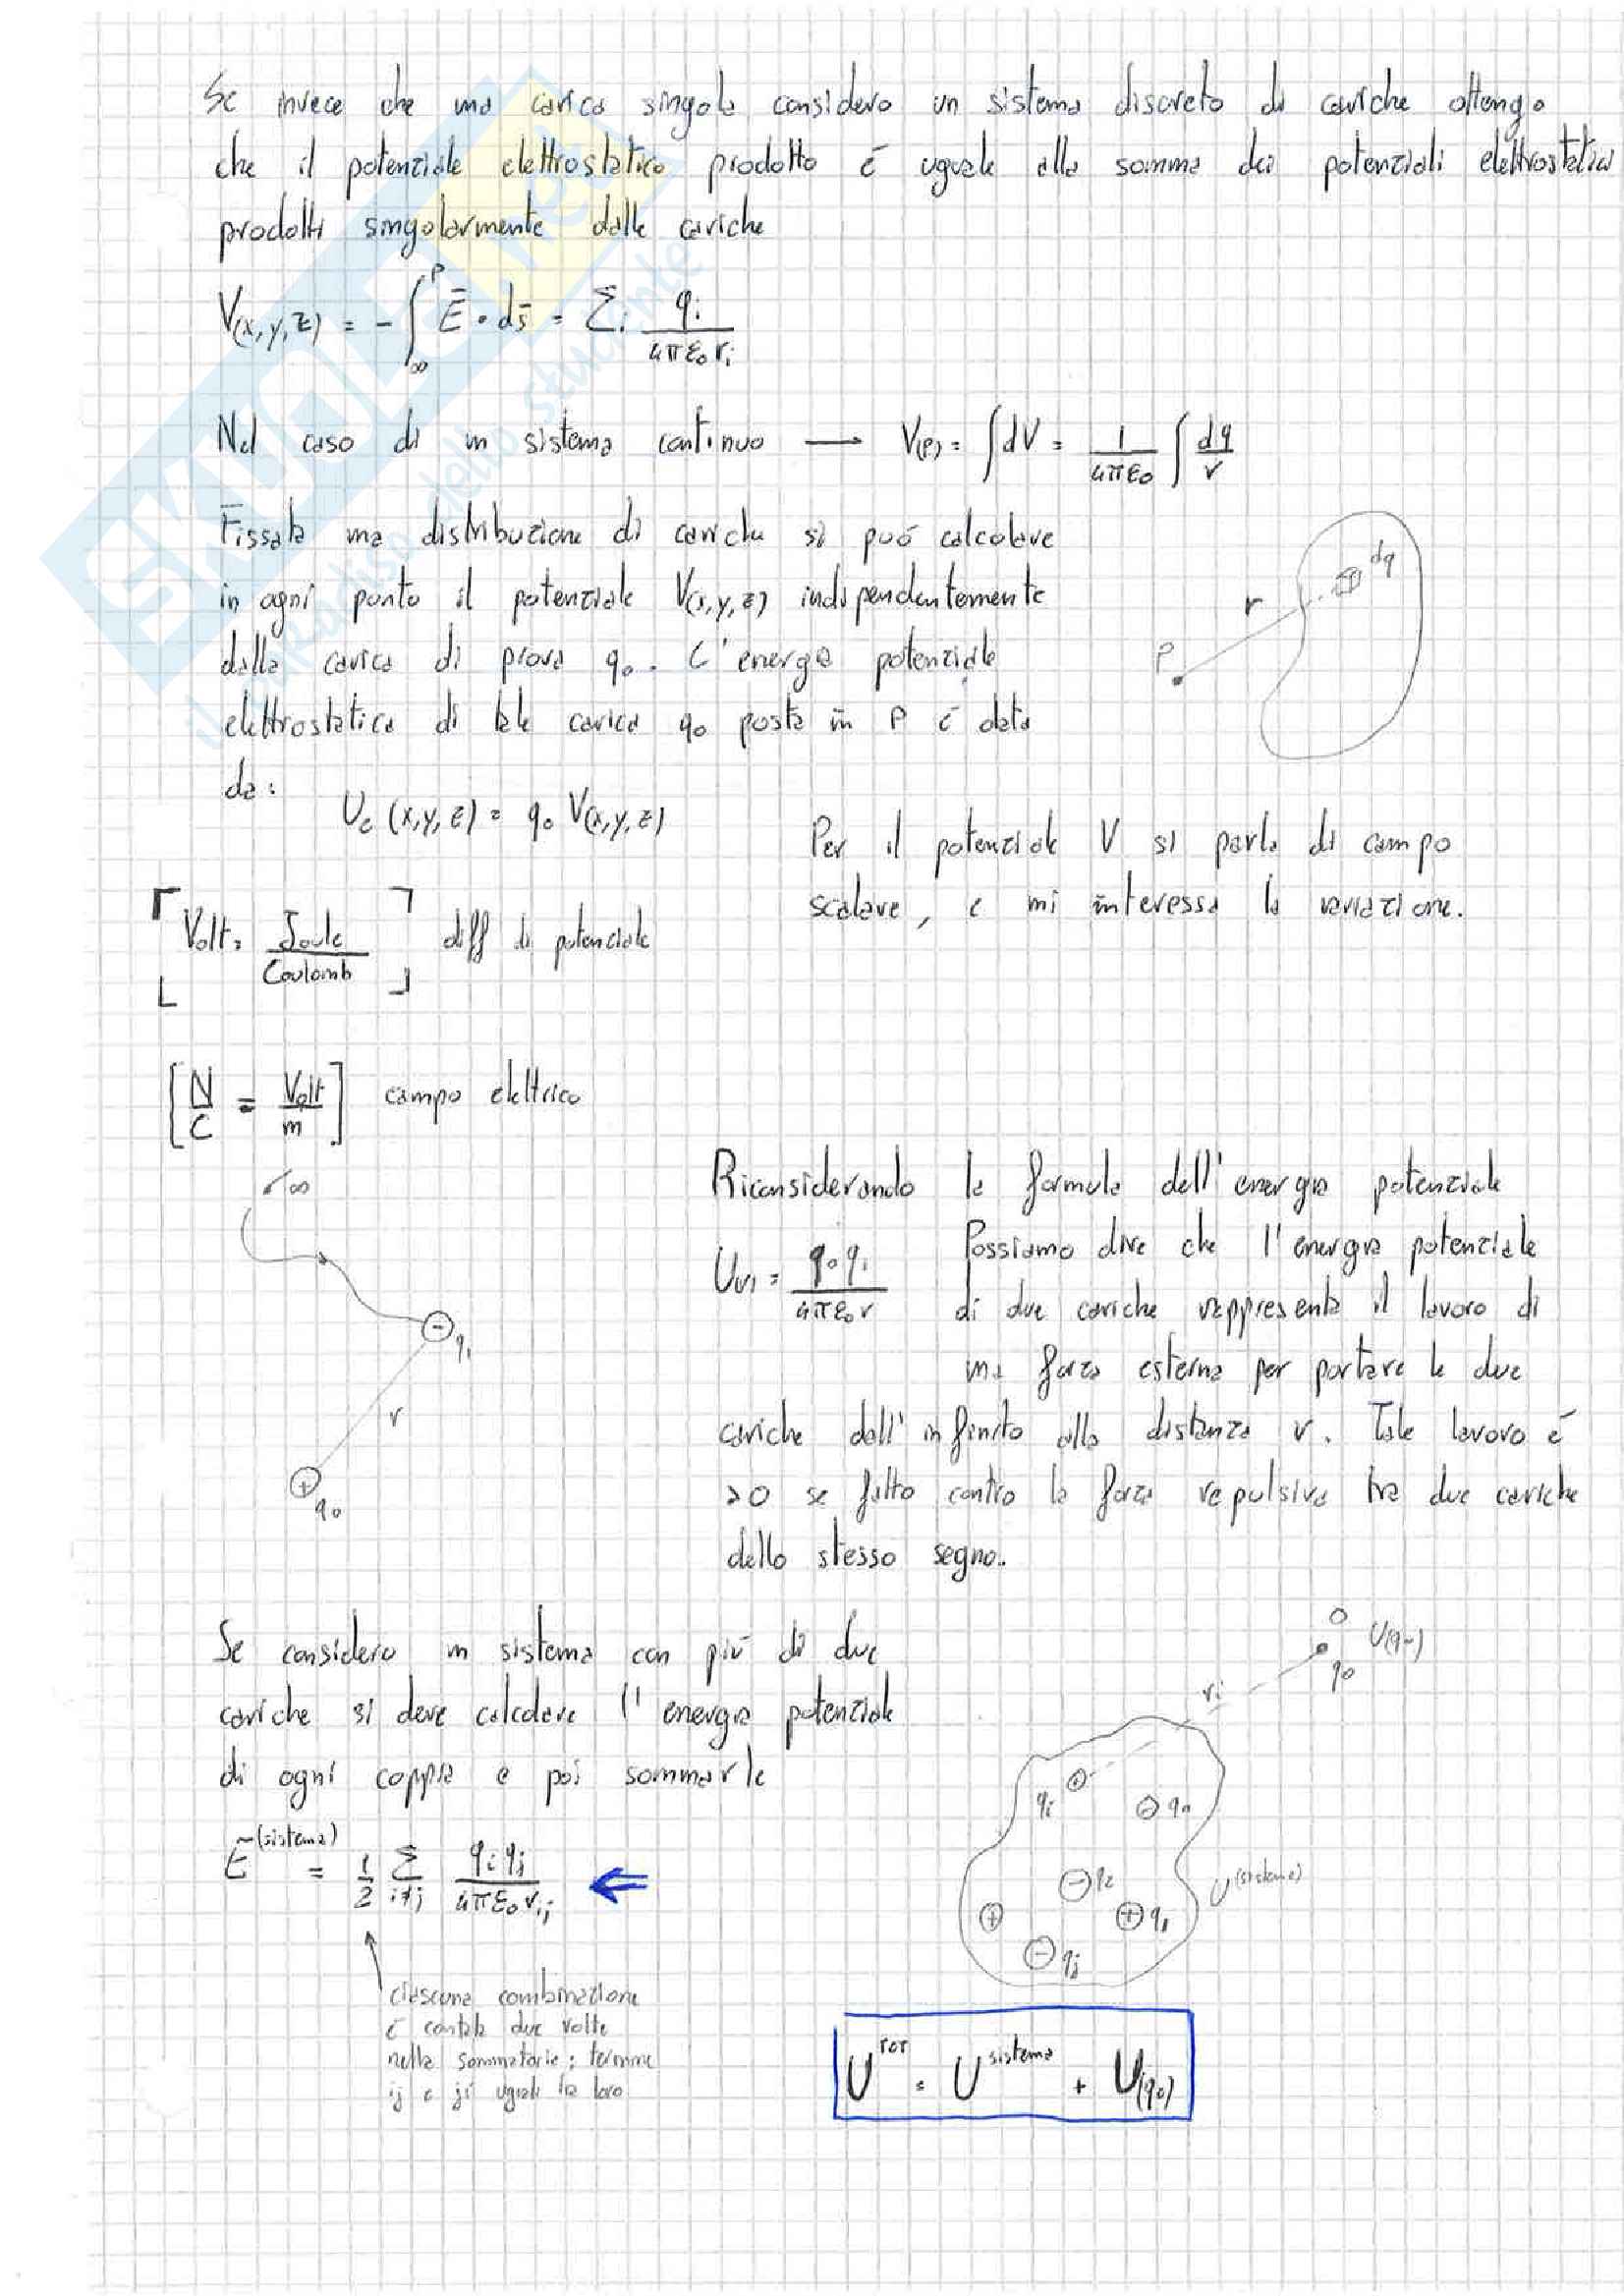 Se invece che una carica singola considero un sistema discreto di cariche ottengo
che il potenziale elettrostatico prodotto é uguale alla somma dei potenziali elettrostatici
prodotti singolarmente dalle cariche
V(x,y,z) = - ∫∞^P Ē • ds̄ = Σi qi / 4πε0 ri
Nel caso di un sistema continuo → V(P) = ∫dV = 1/4πε0 ∫ dq/r
Fissata una distribuzione di cariche si può calcolare
in ogni punto il potenziale V(x,y,z) indipendentemente
dalla carica di prova q0. L'energia potenziale
elettrostatica di tale carica q0 posta in P é data
da:
Ue (x,y,z) = q0 V(x,y,z)
dq
r
P
Per il potenziale V si parla di campo
scalare, e mi interessa la variazione.
[Volt = Joule/Coulomb] diff di potenziale
[N/C = Volt/m] campo elettrico
∞
- q1
r
+ q0
Riconsiderando la formula dell'energia potenziale
U(r) = q0 q1 / 4πε0 r
Possiamo dire che l'energia potenziale
di due cariche rappresenta il lavoro di
una forza esterna per portare le due
cariche dall'infinito alla distanza r. Tale lavoro é
>0 se fatto contro la forza repulsiva tra due cariche
dello stesso segno.
Se considero un sistema con più di due
cariche si deve calcolare l'energia potenziale
di ogni coppia e poi sommarle
Ẽ(sistema) = 1/2 Σi≠j qi qj / 4πε0 rij ⇐
ciascuna combinazione
é contata due volte
nella sommatoria; termine
ij e ji uguali tra loro
q0
ri
qi
+
- qn
- q2
+
+ q1
- qj
U(sistema)
U^TOT = U^sistema + U(q0)
SKUOLA.net
il paradiso dello studente